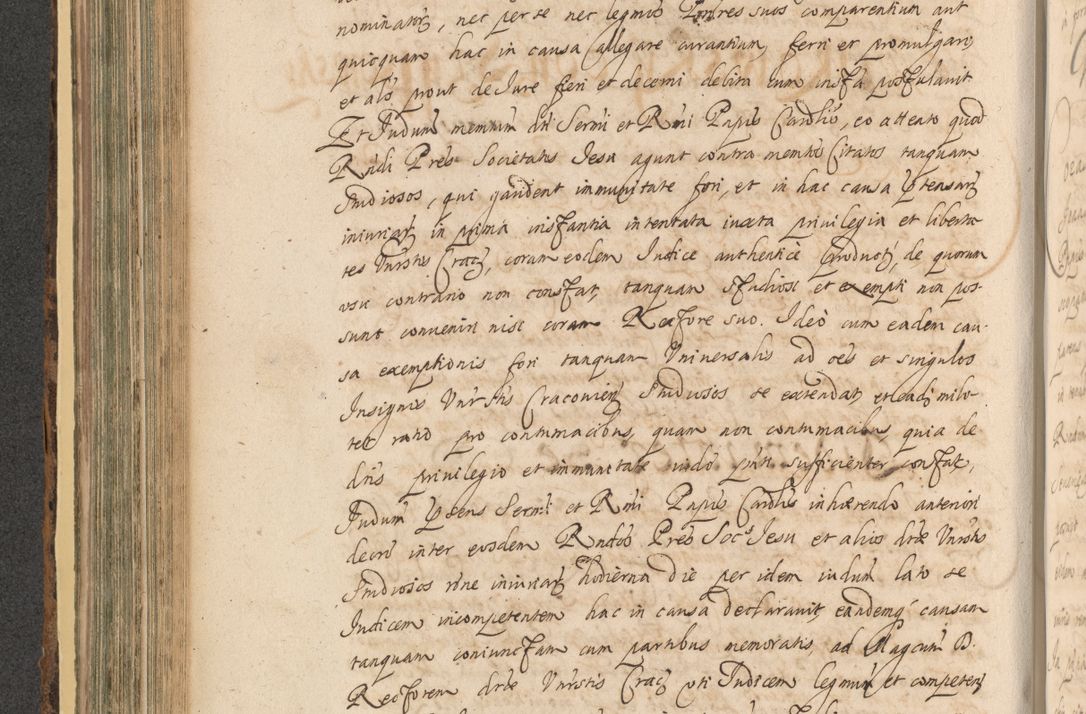 nominatorz, nec per se nec legmos Pntres suos comparentium aut
quicquam hac in causa allegare curantium, ferri et promulgari,
et als prout de Jure fieri et decerni debita cum instã postulavit.
Et Judium memtum dñi Sermi et Rmi Ppis Cardlis, eo atteato quod
Rndi Pres Societatis Jesu agunt contra memtos Citatos tanquam
Studiosos, qui gaudent immunitate fori, et in hac causa prtensarz
iniuriarz in prima instantia intentata iuxta privilegia et liberta
tes Vnirstis Cracz, coram eodem Judice authenticè productz, de quorum
usu contrario non constat, tanquam studiosi et exempti non pos
sunt conveniri nisi coram Rectore suo. Ideò cum eadem cau
sa exemptionis fori tanquam Vniversalis ad oes et singulos
Insignis Vnirstis Cracovienz Studiosos se extendat, et eadz milo
tet ratio pro contumacibus, quam non contumacibus, quia de
dñis privilegio et immunitate iudo pnti sufficienter constat,
Judium prtens Sermi et Rmi Ppis Cardlis inhærendo anteriori
decro inter eosdem Rndos Pres Soctis Jesu et alios dctæ Vnirstis
Studiosos rõne iniuriarz hodierna die per idem iudium lato se
Judicem incompetentem hac in causa declaravit, eandemqz causam
tanquam coniunctam cum partibus memoratis ad Magcum D.
Rectorem dctæ Vnirstis Cracz uti Judicem legmum et competenz